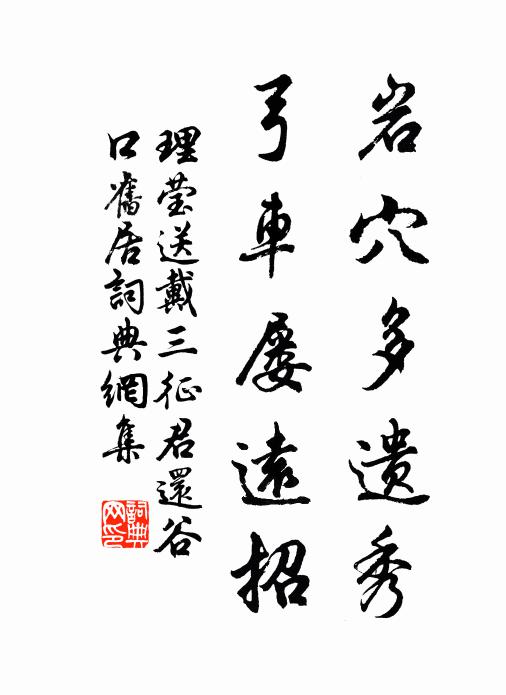 岩穴多遗秀
弓車屡遠招
理莹送戴三征君還谷
口舊居詞典網集
詞典
网印